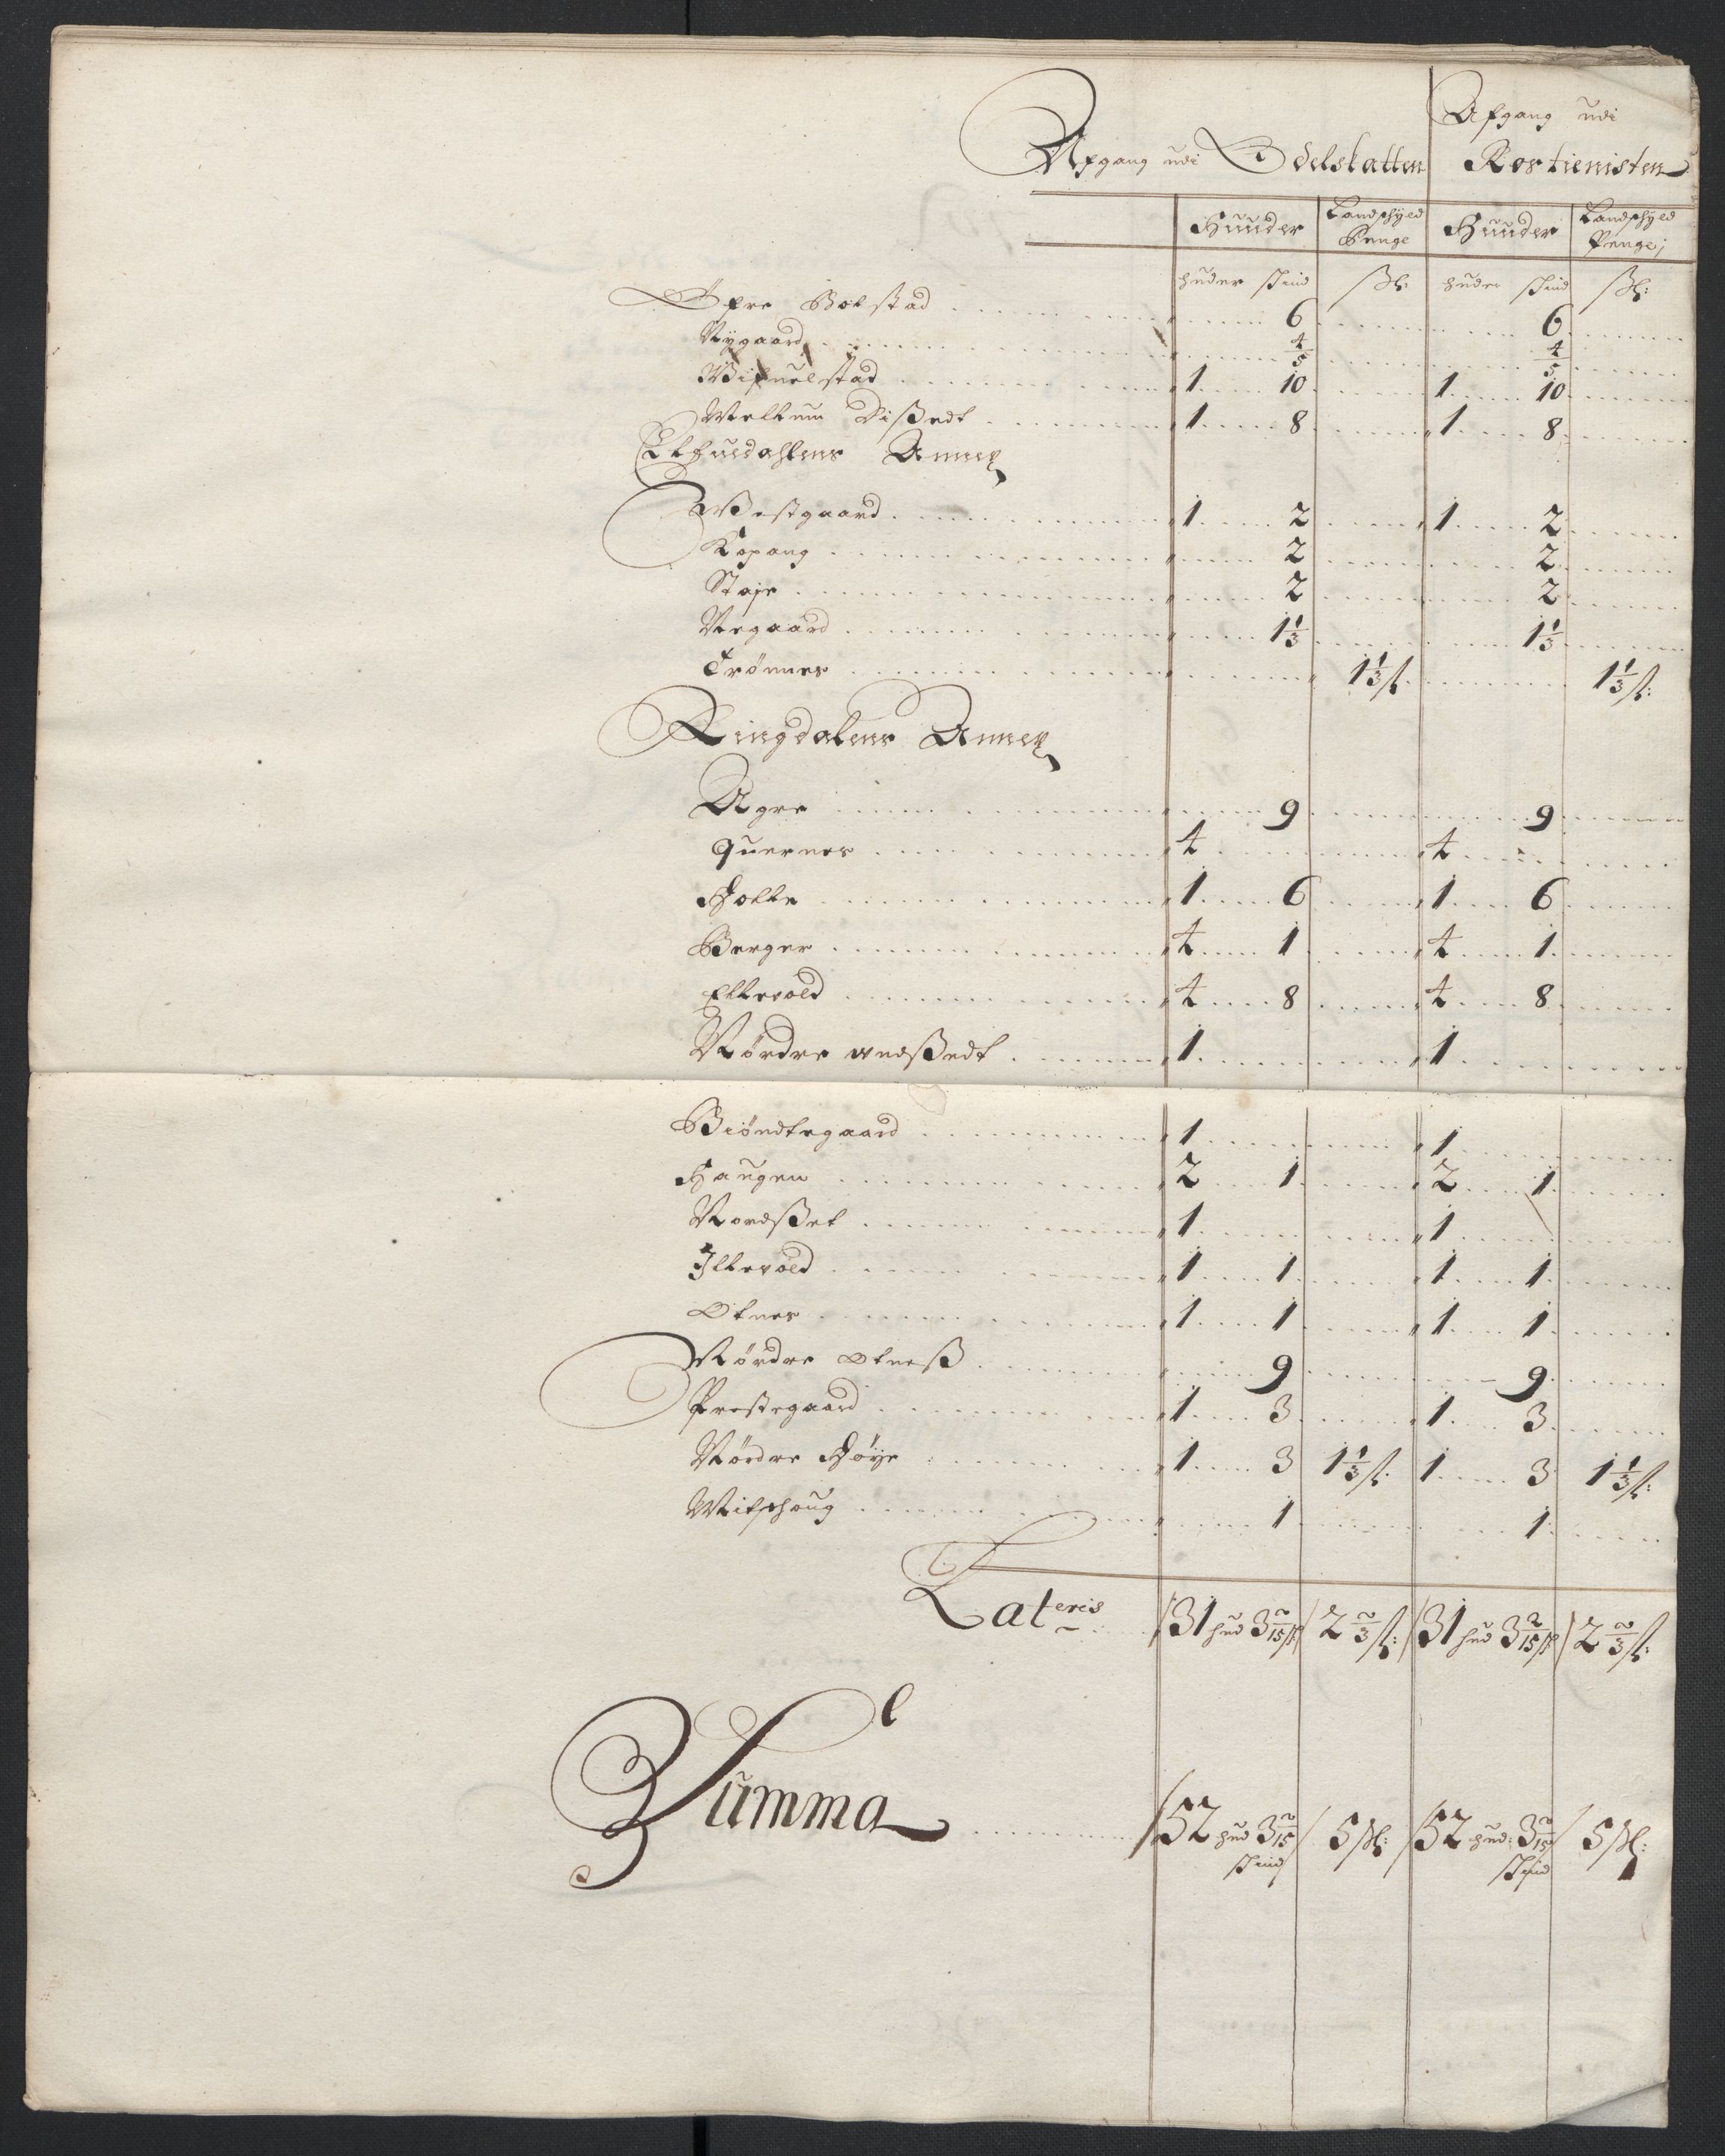 Afgang udi Odelskatten Afgang udi Rostienisten
Huuder Landskyld Penge Huuder Landskyld Penge;
huder skind ßk: huder skind ßk:
Öfre Bolstad 6 6
Nygaard 4/5 4/5
1 10 1 10
Mellum Disßedt 1 8 1 8
Elfuedahlens Annex
Westgaard 1 2 1 2
Kopang 2 2
Staje 2 2
Negaard 1 1/3 1 1/3
Trønnes 1 1/3 ß. 1 1/3 ß:
Ringdalens Annex
Agre 9 9
Quernes 4 4
Holte 1 6 1 6
Berger 4 1 4 1
Ellevold 4 8 4 8
Nørdre 1 1
Biøndtegaard 1 1
Haugen 2 1 2 1
Nordßet 1 1
Illevold 1 1 1 1
Otnes 1 1 1 1
Nørdre Otneß 9 9
Prestegaard 1 3 1 3
Nørdre Høye 1 3 1 1/3 ß. 1 3 1 1/3 ß:
Midschoug 1 1
Lateris 31 hud 3 2/15 sk 2 2/3 ß: 31 hud 3 2/15 sk 2 2/3 ß:
Summa 52 hud 3 2/15 skind 5 ßk: 52 hud: 3 2/15 skind 5 ßk: